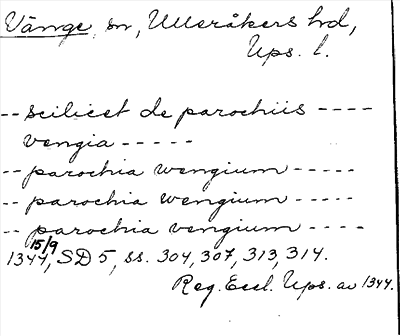 Vänge, sn, Ulleråkers hd,
Ups. l.
-- scilicet de parochiis ----
vengia -----
-- parochia wengium -----
-- parochia wengium -----
-- parochia vengium ----
15/9
1344, SD 5, ss. 304, 307, 313, 314.
Reg. Eccl. Ups. av 1344.